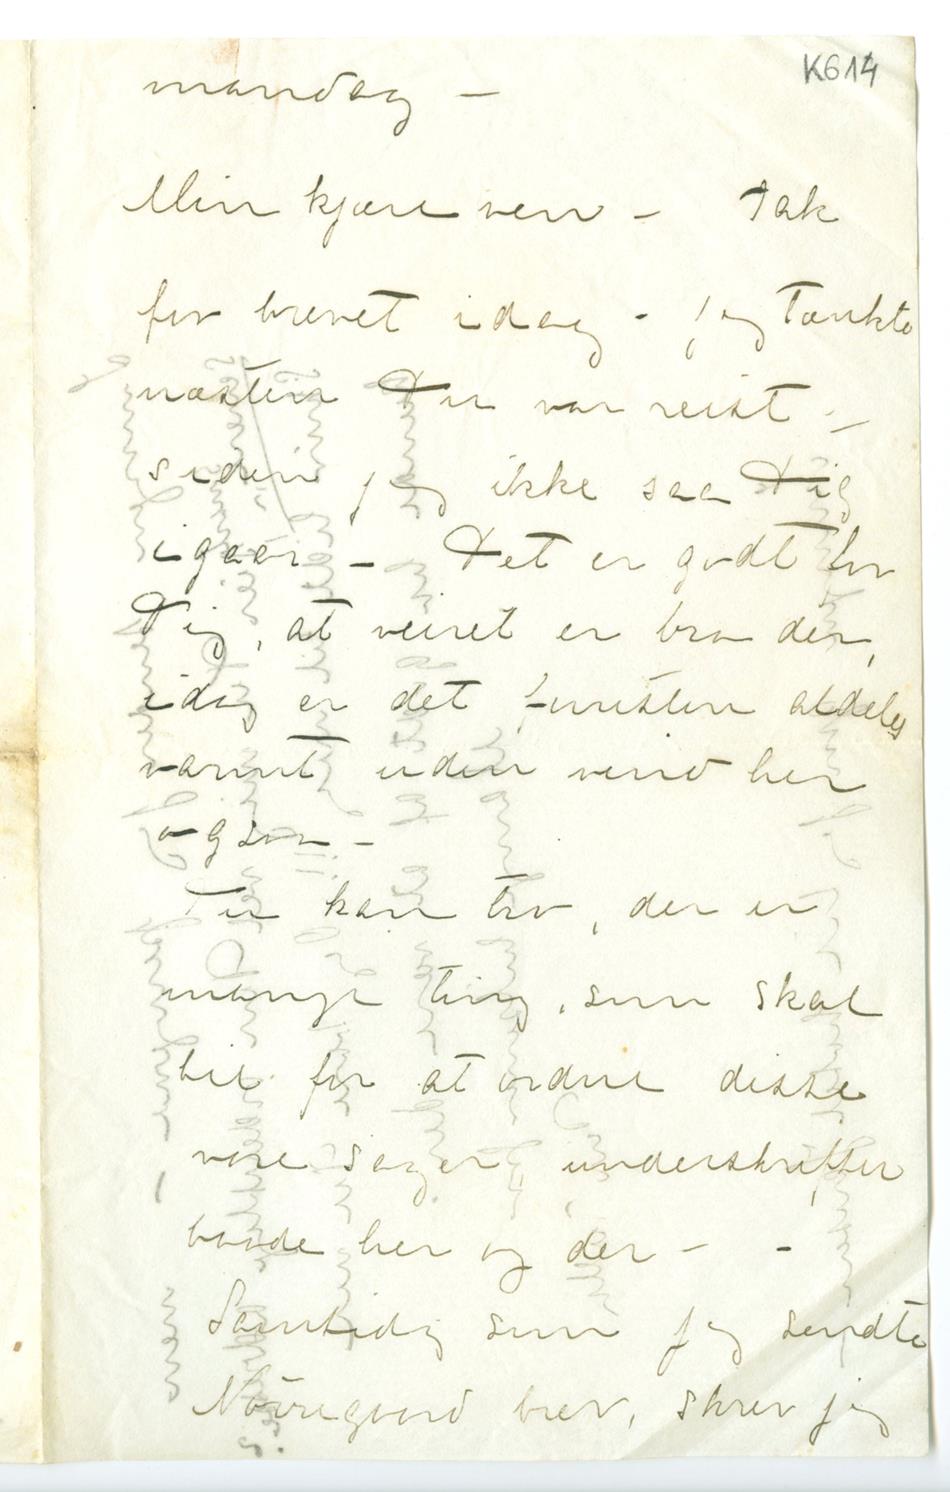 K614
mandag —
Min kjære ven — Tak
for brevet idag - jeg tænkte
næsten Du var reist —
siden jeg ikke saa Dig
igaar — Det er godt for
Dig, at veiret er bra der,
idag er det aldeles
varmt uden vind her
ogsaa —
Du kan tro, der er
mange ting, som skal
til for at ordne disse
vore sager, underskrifter
baade her og der — -
Samtidig som jeg sendte
Nöregaard brev, skrev jeg